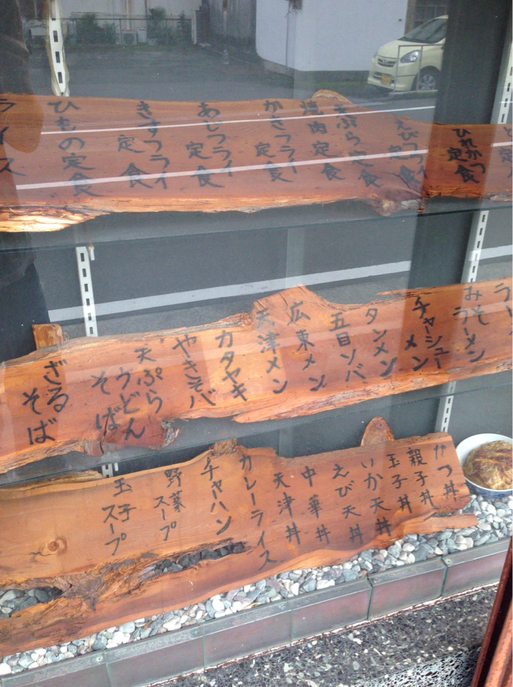 ひれかつ定食
定食
天ぷら定食
焼肉定食
かきフライ定食
あじフライ定食
きすフライ定食
ひもの定食
ライス
みそラーメン
チャシューメン
タンメン
五目ソバ
広東メン
天津メン
カタヤキ
やきそバ
天ぷら
うどん
そば
ざるそば
かつ丼
親子丼
玉子丼
いか天丼
えび天丼
中華丼
天津丼
カレーライス
チャーハン
野菜スープ
玉子スープ